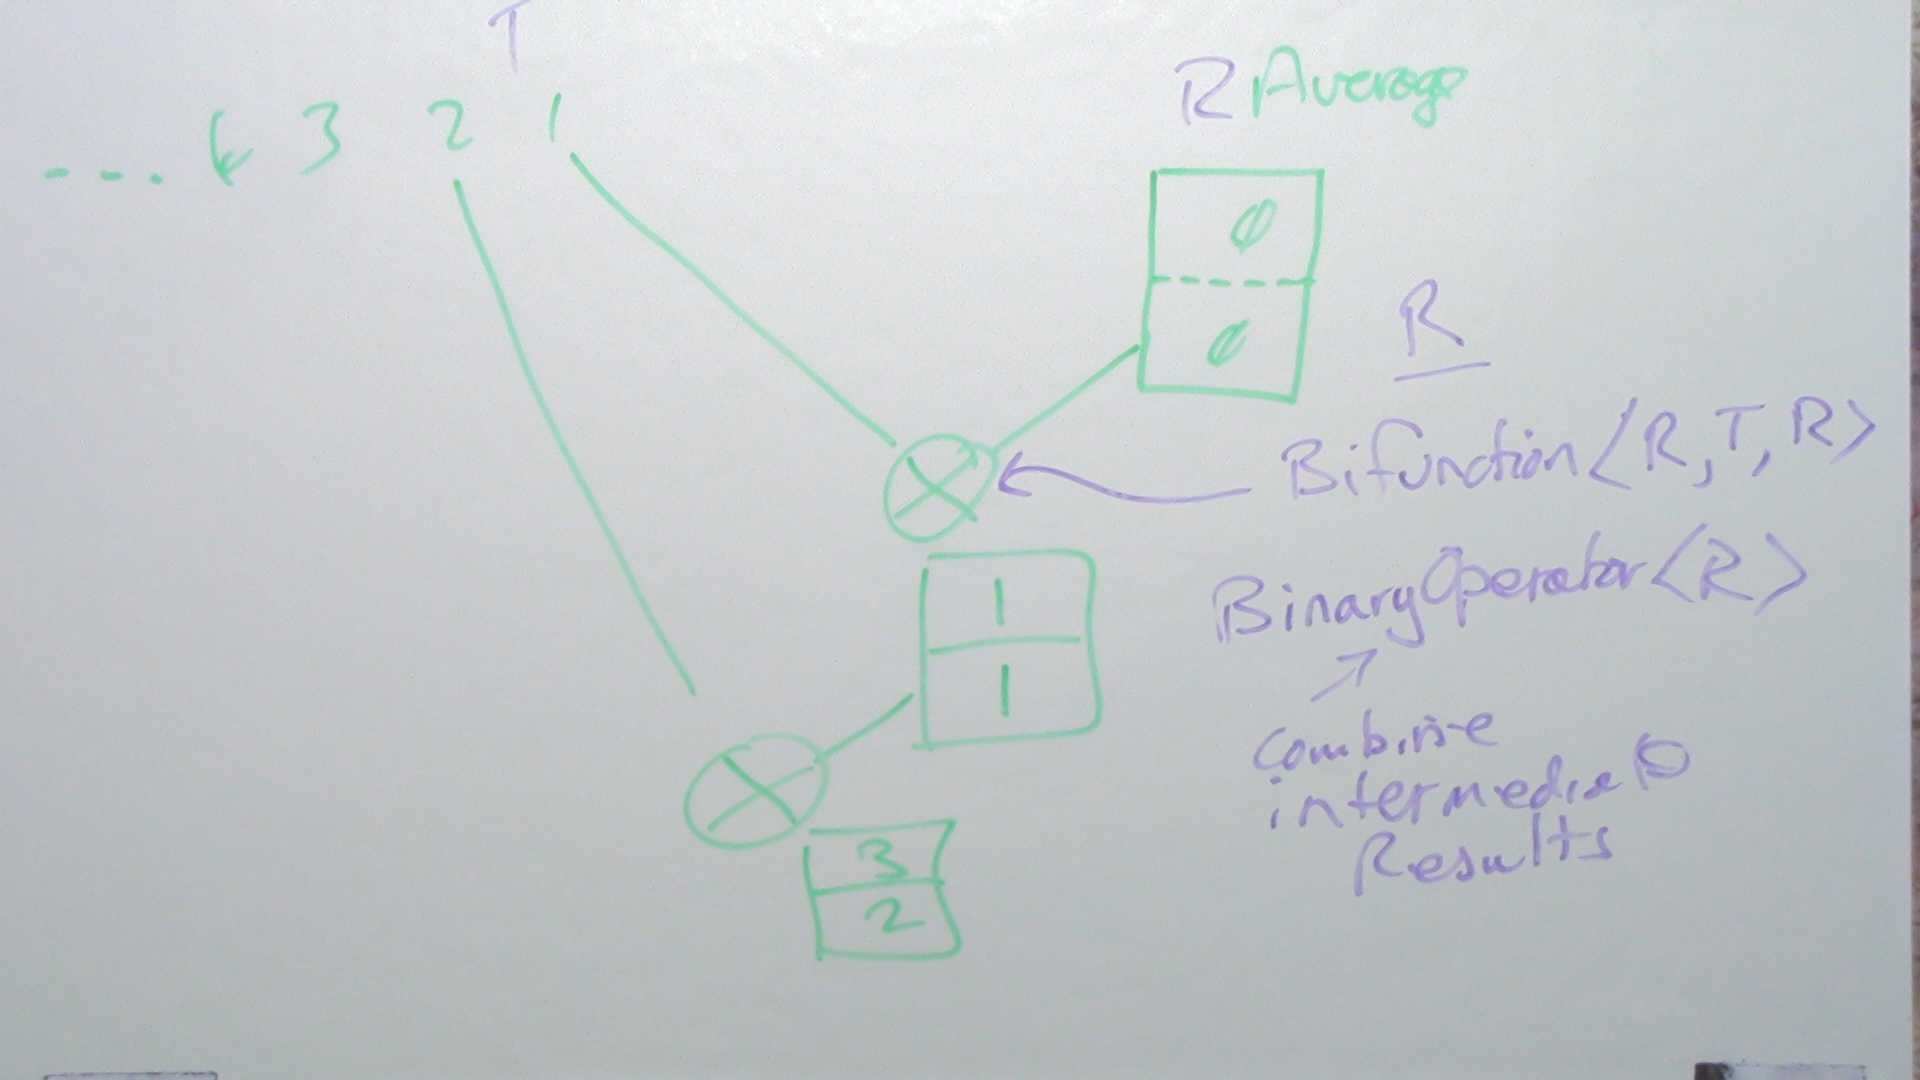 T
R Average
--- 4 3 2 1
0
0
R
Bifunction<R,T,R>
BinaryOperator<R>
1
1
Combine
intermediate
Results
3
2